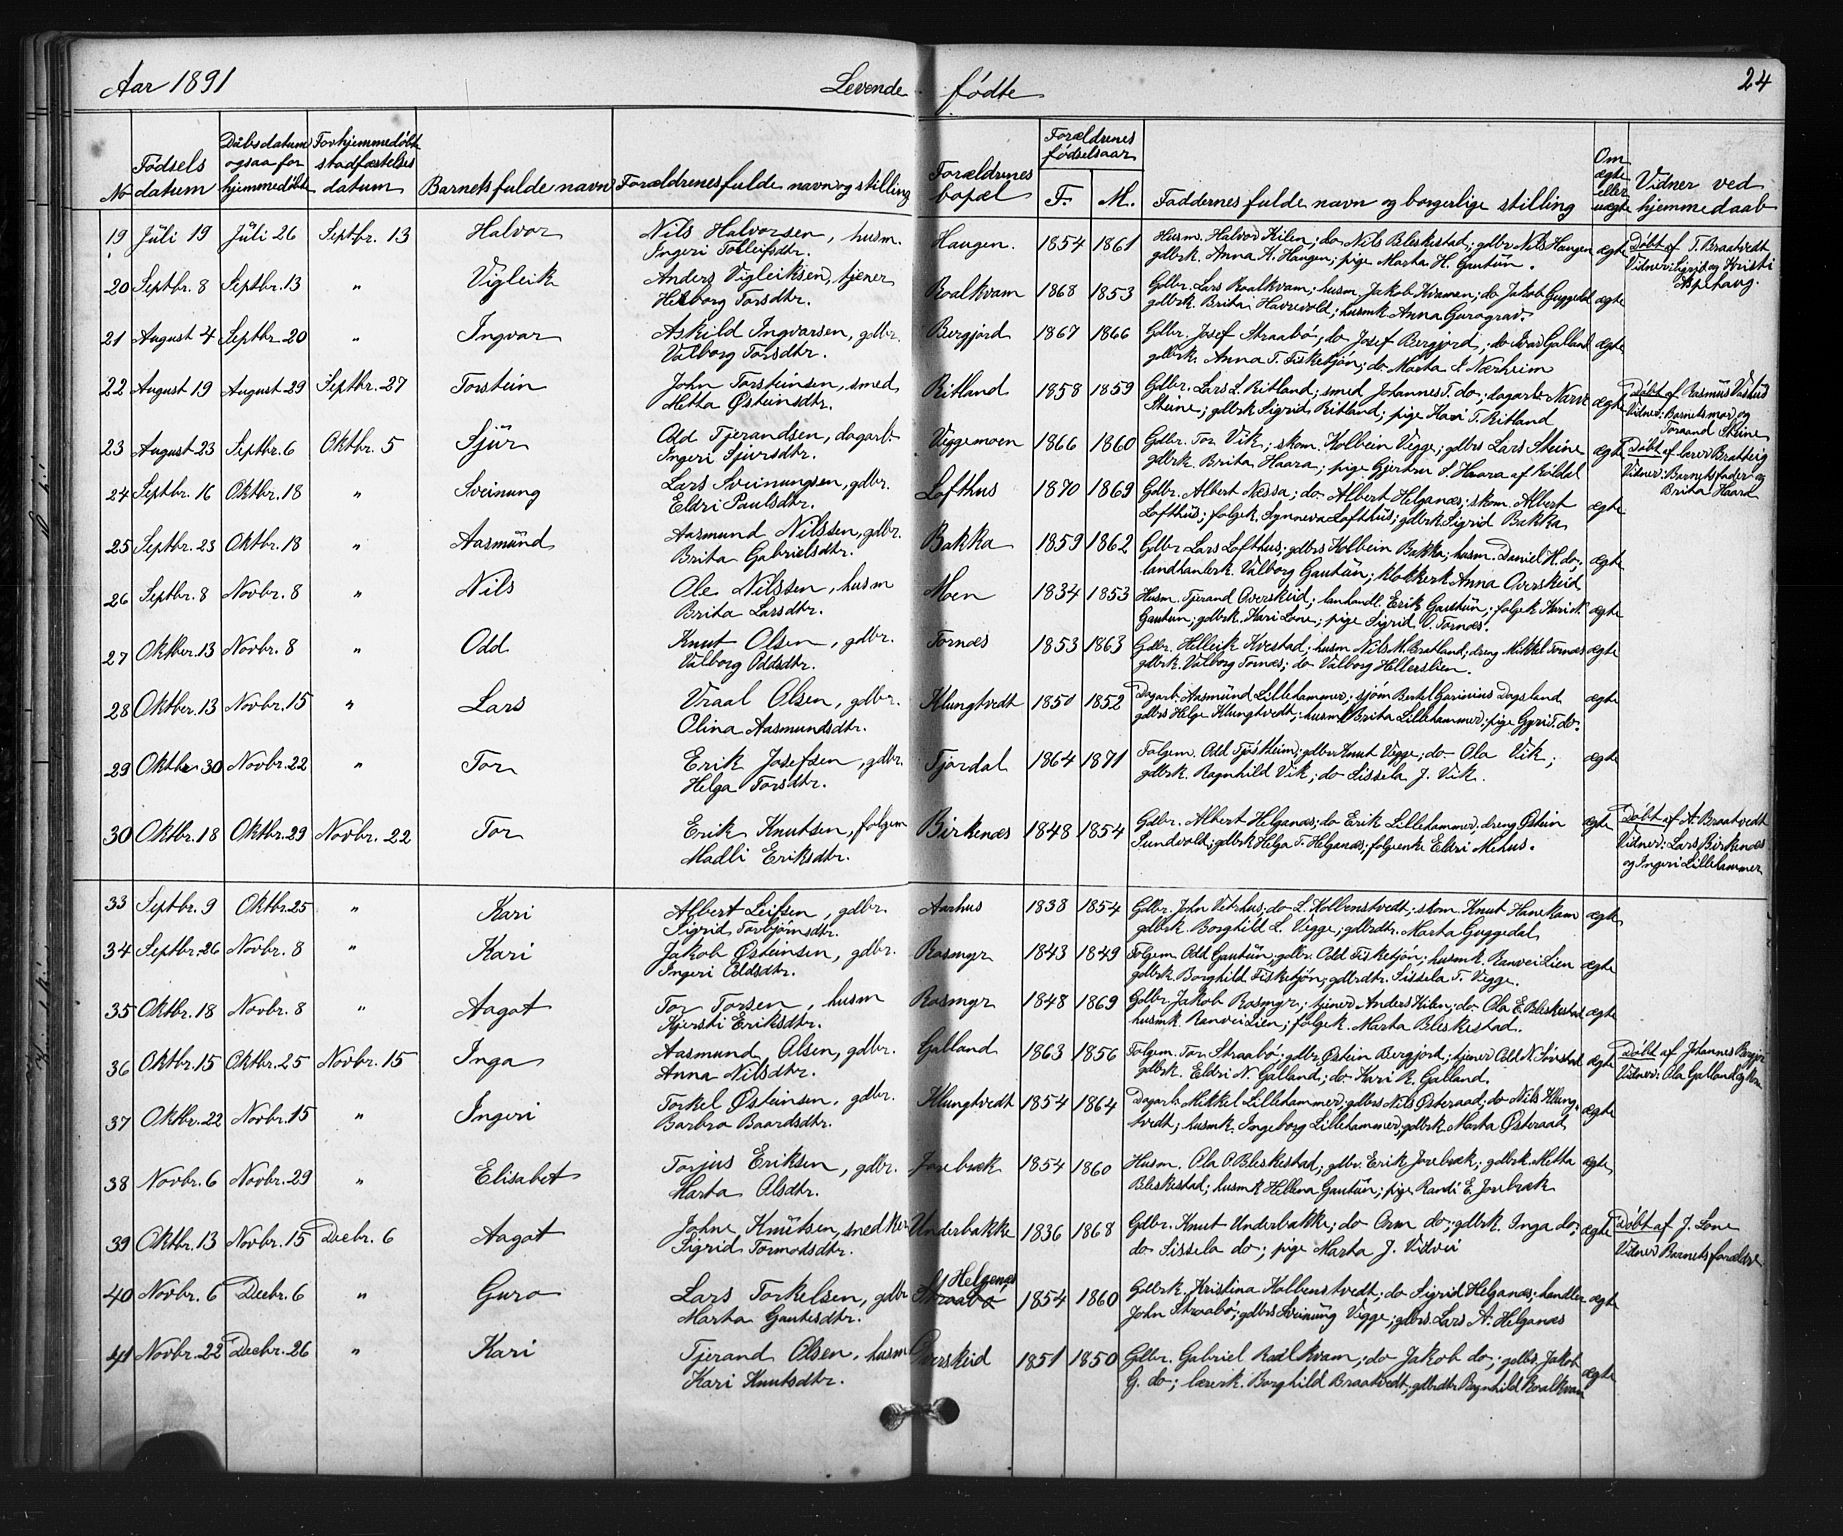 Aar 1891 Levende fødte 24
No Fødsels datum Daabsdatum ogsaa for hjemmedøbte For hjemmedøbt stadfæstelses datum Barnets fulde navn Forældrenes fulde navn og stilling Forældrenes bopæl Forældrenes fødselsaar F. M. Faddernes fulde navn og borgerlige stilling Om ægte eller uægte Vidner ved hjemmedaab
19 Juli 19 Juli 26 Septbr. 13 Halvor Nils Halvorsen, husm. Haugen. 1854 1861 Husm. Halvor Kilen; do Nils Bleskestad; gdbr Nils Haugen ægte Døbt af T. Braatvedt
Ingeri Tolleifsdtr. gdbrk. Anna K. Haugen; pige Marta H. Gautün. Vidner: Sigrid og Kristi
20 Septbr. 8 Septbr. 13 " Vigleik Anders Vigleiksen, tjener Roalkvam 1868 1853 Gdbr. Lars Roalkvam; husm Jakob Kvamen; do Jakob Guggedal ægte
Hilborg Torsdtr. gdbrk. Brita Havrevold; husmk Anna Garagrav.
21 August 4 Septbr. 20 " Ingvar Askild Ingvarsen, gdbr. Bergjord 1867 1866 Gdbr. Josef Straabø; do Josef Bergjord; do Ivar Galland ægte
Valborg Torsdtr. gdbrk. Anna T. Fisketjøn; do Marta L Nærheim
22 August 19 August 29 Septbr. 27 Torstein John Torsteinsen, smed Ritland 1858 1859 Gdbr. Lars L. Ritland; smed Johannes T. do; dagarb. Narve ægte Døbt af Rasmus
Metta Østeinsdtr. Steine; gdbrk Sigrid Ritland; pige Kari T. Ritland Vidner: Barnets mor og
Toraand Steine
23 August 23 Septbr. 6 Oktbr. 5 Sjür Odd Tjerandsen, dagarb. Veggemoen 1866 1860 Gdbr. Tor Vik; skom. Kolbein Vegge; gdbrs Lars Steine ægte Døbt af lærer Bratteig
Ingeri Sjursdtr. gdbrk. Brita Haara; pige Gjertru S. Haara af Røldal Vidner: Barnets fader og
24 Septbr. 16 Oktbr. 18 " Sveinung Lars Sveinungsen, gdbr. Lofthus 1870 1869 Gdbr. Albert Nessa; do Albert Helganæs; skom. Albert ægte Brita Haara
Eldri Paulsdtr. Lofthüs; folgek. Synneva Lofthüs; gdbrk Sigrid Bakka
25 Septbr. 23 Oktbr. 18 " Aasmünd Aasmund Nilssen, gdbr. Bakka 1859 1862 Gdbr Lars Lofthus; gdbrs Kolbein Bakka; husm. Daniel H. do; ægte
Brita Gabrielsdtr. landhanlerk. Valborg Gautün; klokkerk Anna Overskeid
26 Septbr. 8 Novbr. 8 " Nils Ole Nilssen, husm Moen 1834 1853 Husm. Tjerand Overskeid; lanhandl. Erik Gautün; folgek Kari N. ægte
Brita Larsdtr. Gautun; gdbrk. Kari Lone; pige Sigrid O. Tornæs.
27 Oktber. 13 Novbr. 8 " Odd Knut Olsen, gdbr. Tornæs 1853 1863 Gdbr. Helleik Kvestad; husm Nils M. Bratland; dreng Mikkel Tornæs ægte
Valborg Oddsdtr. gdbrk. Valborg Tornæs; do Valborg Hellerslien.
28 Oktber. 13 Novbr. 15 " Lars Vraal Olsen, gdbr. Klungtvedt 1850 1852 Dagarb. Aasmünd Lillehammer; sjøm Bertel Garinius Dagsland ægte
Olina Aasmundsdtr. gdbrs Helge Klungtvedt; husmk Brita Lillehammer; pige Gyri T. do.
29 Oktbr 30 Novbr. 22 " Tor Erik Josefsen, gdbr. Fjordal 1864 1871 Folgem. Odd Tjøstheim; gdbr Knut Vegge; do Ola Vik; ægte
Helga Torsdtr. gdbrk. Ragnhild Vik; do Sissela J. Vik.
30 Oktbr. 18 Oktbr. 29 Novbr. 22 Tor Erik Knutsen, folgem Birkenæs 1848 1854 Gdbr. Albert Helganæs; do Erik Lillehammer; dreng Østein ægte Døbt af A. Braatvedt
Madli Eriksdtr. Sundvold; gdbrk Helga T. Helganæs; folgenk Eldri Mehus. Vidner: Lars Birkenæs
og Ingeri Lillehammer
33 Septbr. 9 Oktbr. 25 " Kari Albert Leifsen, gdbr. Aarhus 1838 1854 Gdbr. John Veterhus; do L. Kolbenstvedt; skom. Knut Hanekam ægte
Sigrid Torbjørnsdtr. gdbrk. Borghild L. Vegge; gdbrdtr. Marta Guggedal
34 Septbr. 26 Novbr. 8 " Kari Jakob Østeinsen, gdbr. Rasmyr 1843 1849 Folgem Odd Gautün; gdbr. Odd Fisketjøn; husmk. Ranvei Lien ægte
Ingeri Oddsdtr. gdbrk. Borghild Fisketjøn; gdbrdtr. Sissela T. Vegge.
35 Oktbr. 18 Novbr. 8 " Aagot Tor Torsen, husm Rasmyr 1848 1869 Gdbr. Jakob Rasmyr; tjener Anders Kilen; do Ola E. Bleskestad ægte
Kjersti Eriksdtr. husmk. Ranvei Lien; folgek. Marta Bleskestad.
36 Oktbr. 15 Oktbr. 25 Novbr. 15 Inga Aasmund Olsen, gdbr. Galland 1863 1856 Folgem. Tor Straabø; gdbr Østein Bergjord; tjener Odd N. ægte Døbt af Johannes
Anna Nilsdtr. gdbrk. Eldri N. Galland; do Kari R. Galland. Vidner: Ola Galland og
37 Oktbr. 22 Novbr. 15 " Ingeri Torkel Østeinsen, gdbr. Klungtvedt 1854 1864 Dagarb Mikkel Lillehammer; gdbrs Nils Østeraad; do Nils Klung- ægte
Barbro Baardsdtr. tvedt; husmk. Ingeborg Lillehammer; gdbrk Marta Østeraad
38 Novbr. 6 Novbr. 29 " Elisabet Torjus Eriksen, gdbr. Jorebræk 1854 1860 Husm. Ola O. Bleskestad; gdbr. Erik Jorebræk; gdbrk. Metta ægte
Marta Olsdtr. Bleskestad; husmk Hellena Gautün; pige Randi E. Jorebræk
39 Oktbr. 13 Novbr. 15 Decbr. 6 Aagot Johne Knütsen, smed Underbakke 1836 1868 Gdbr. Knut Underbakke; do Orm do; gdbrk. Inga do; ægte Døbt af J. Lone
Sigrid Tormodsdtr. do Sissela do; pige Marta J. Vidner Barnets forældre
40 Novbr. 6 Decbr. 6 " Guro Lars Torkelsen, gdbr Straabø Helganæs 1854 1860 Gdbrk. Kristina Kolbenstvedt; do Sigrid Helganæs; handler ægte
Marta Gautesdtr. John Straabø; gdbrs Sveinüng Vegge; gdbrs. Lars A. Helganæs
41 Novbr. 22 Decbr. 26 " Kari Tjerand Olsen, husm Overskeid 1851 1850 Gdbr. Gabriel Roalkvam; do Jakob do; gdbr. Jakob ægte
Kari Knutsdtr. G. do; lærerk. Borghild Braatvedt; gdbrdtr Ragnhild Roalkvam